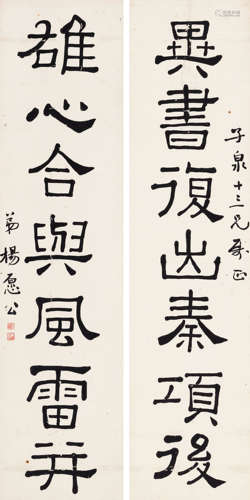 異書復出秦項後
子泉十三兄哂正
雄心合與風雷并
弟楊愿公